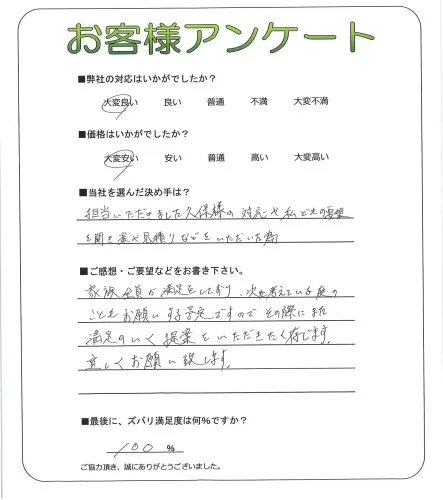 お客様アンケート
■弊社の対応はいかがでしたか？
大変良い 良い 普通 不満 大変不満
■価格はいかがでしたか？
大変安い 安い 普通 高い 大変高い
■当社を選んだ決め手は？
担当いただきました久保様の対応や私どもの要望
を聞き 見積りなどをいただいた為
■ご感想・ご要望などをお書き下さい。
家族全員が満足をしており、次に考えている庭の
こともお願いする予定ですのでその際にまた
満足のいく提案をいただきたく存じます。
宜しくお願い致します。
■最後に、ズバリ満足度は何％ですか？
100 ％
ご協力頂き、誠にありがとうございました。